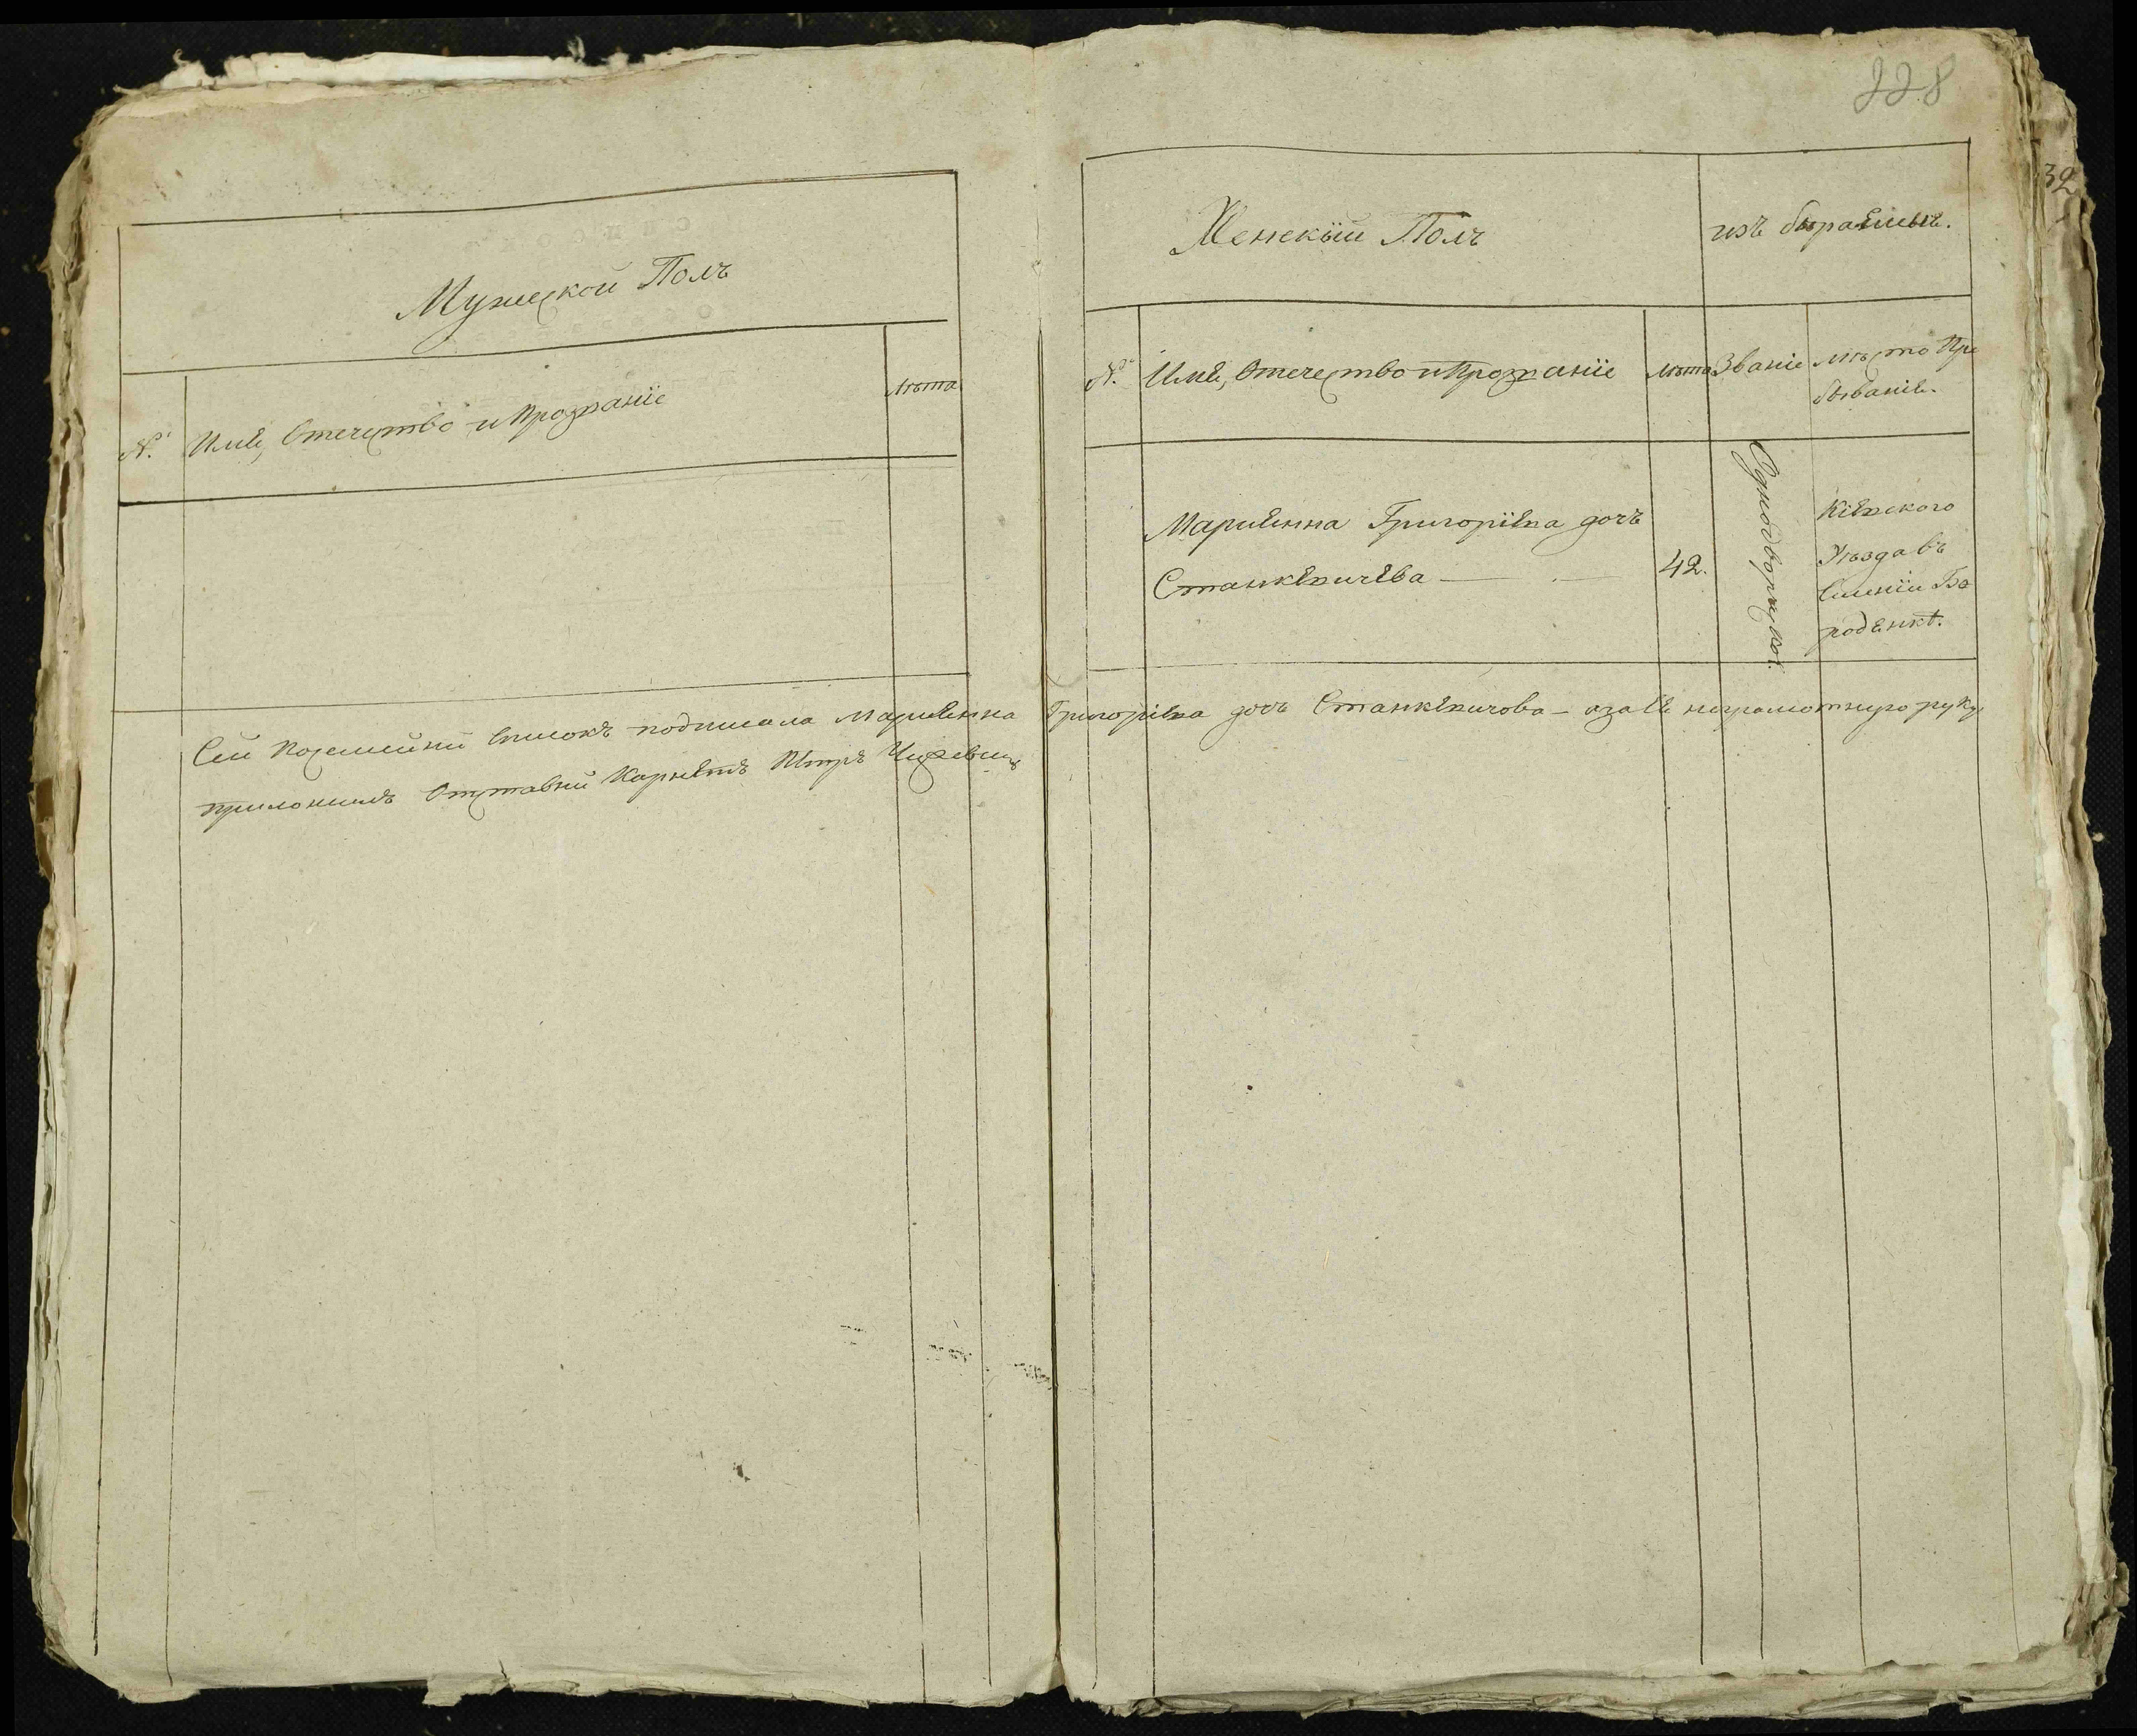 228
32
Мужеской Полъ
№ Име, Отечество и Прозваніе Лѣта
Женский Полъ
изъ
№ Име, Отечество и Прозваніе Лѣта Званіе Мѣсто Пре
бываніе.
Мариенна Григоріева дочь
Станкевичева 42.
Киевского
Уѣзда въ
Бо
роденкѣ.
Сей Посемейний Списокъ подписала Мариенна Григоріева дочь Станкевичова – аза Ее неграмотную руку
приложилъ Отставний Карнетъ Петръ